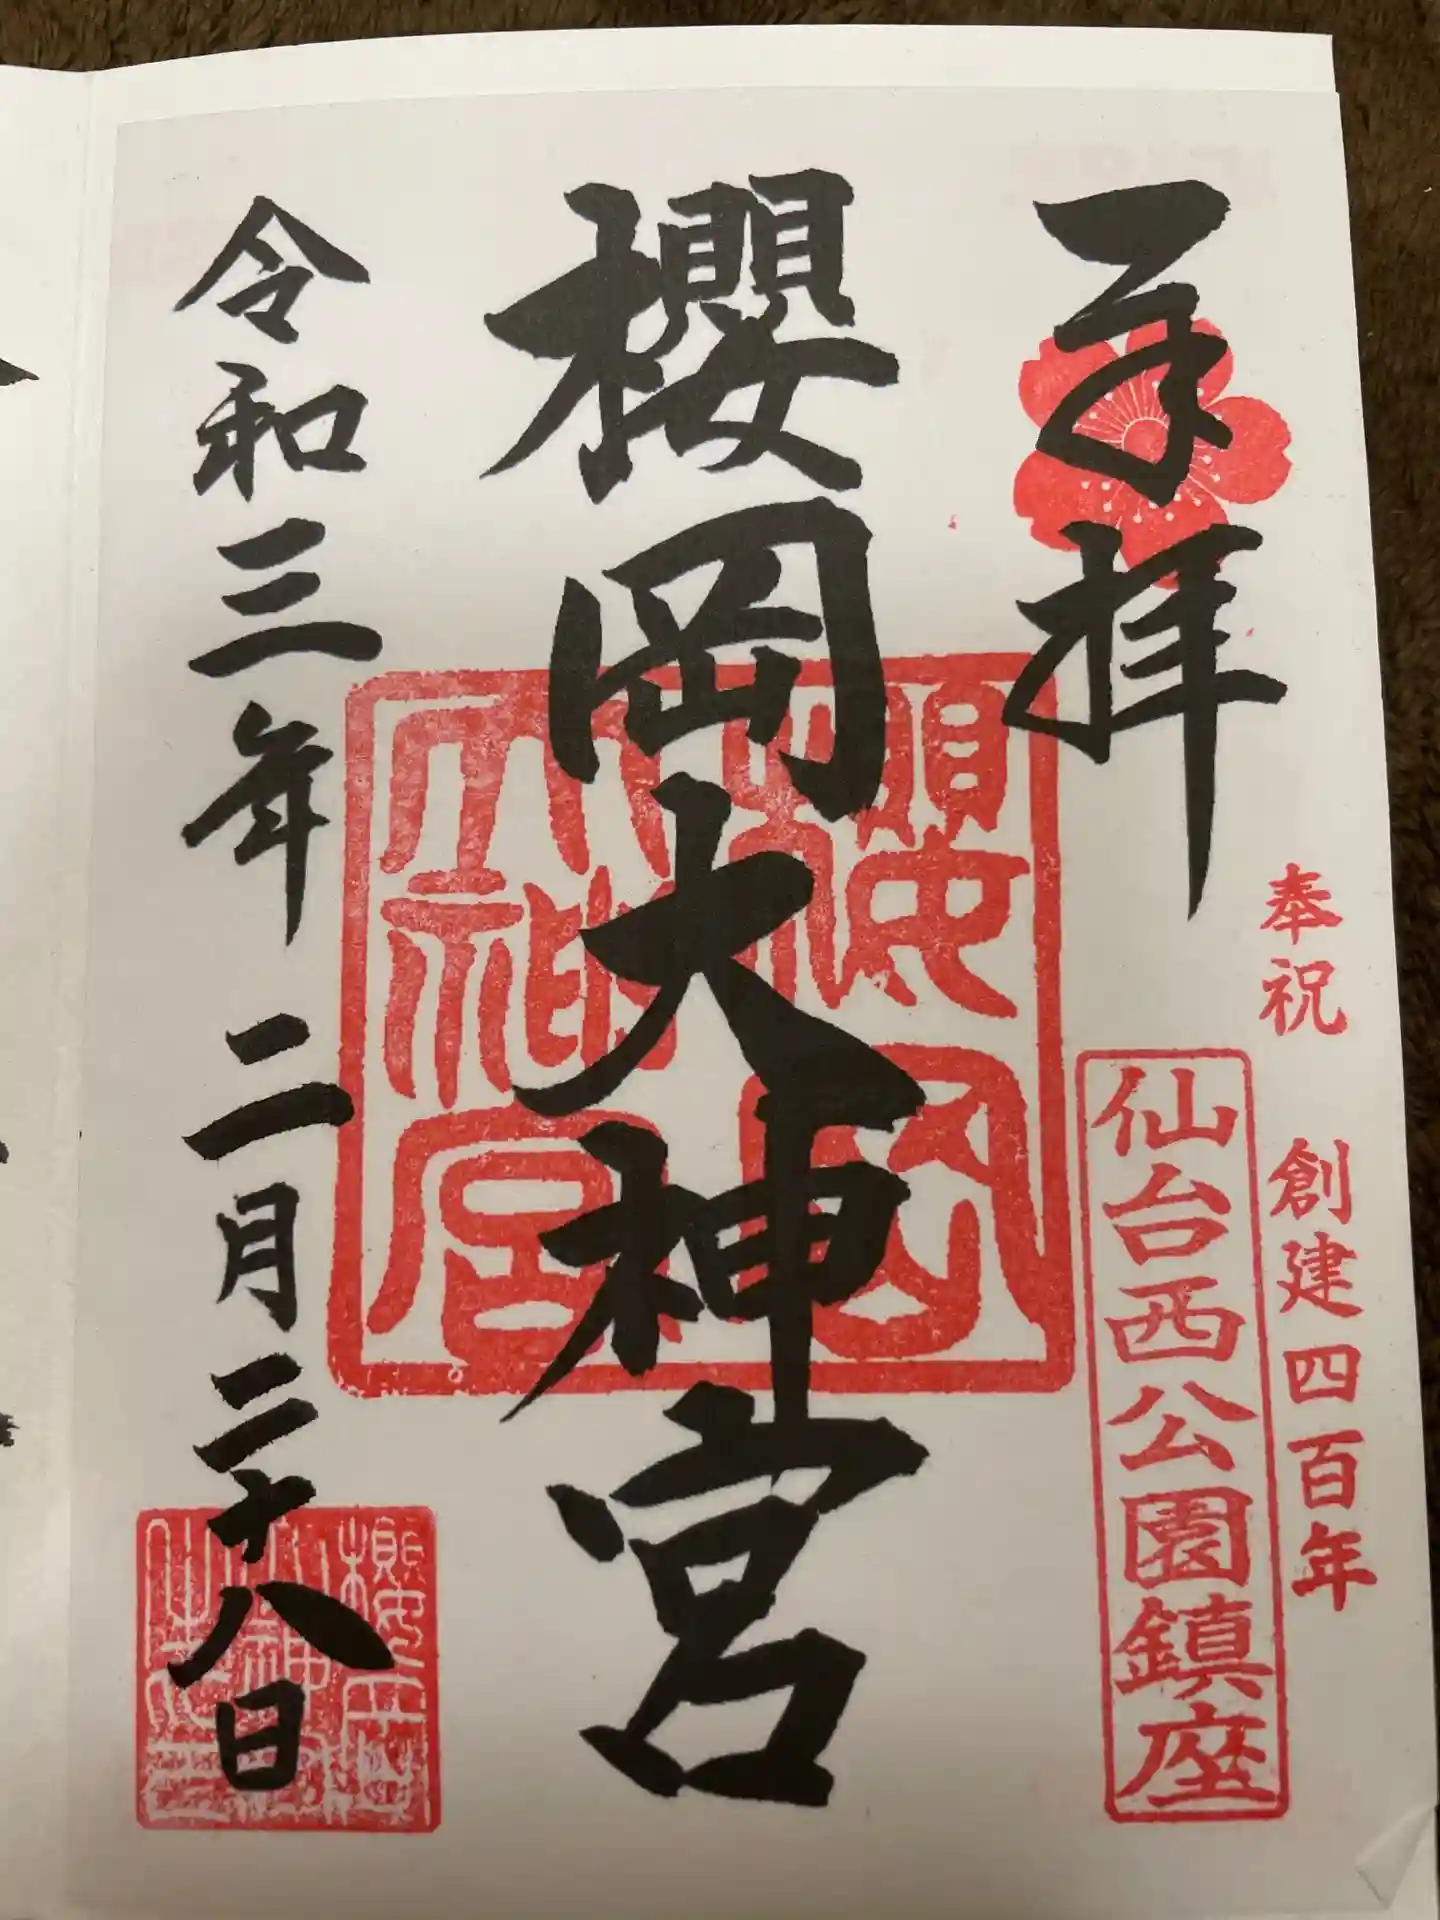 奉祝 創建四百年
奉拝
仙台西公園鎮座
櫻岡大神宮
櫻岡
大神宮
令和三年 二月 二十八日